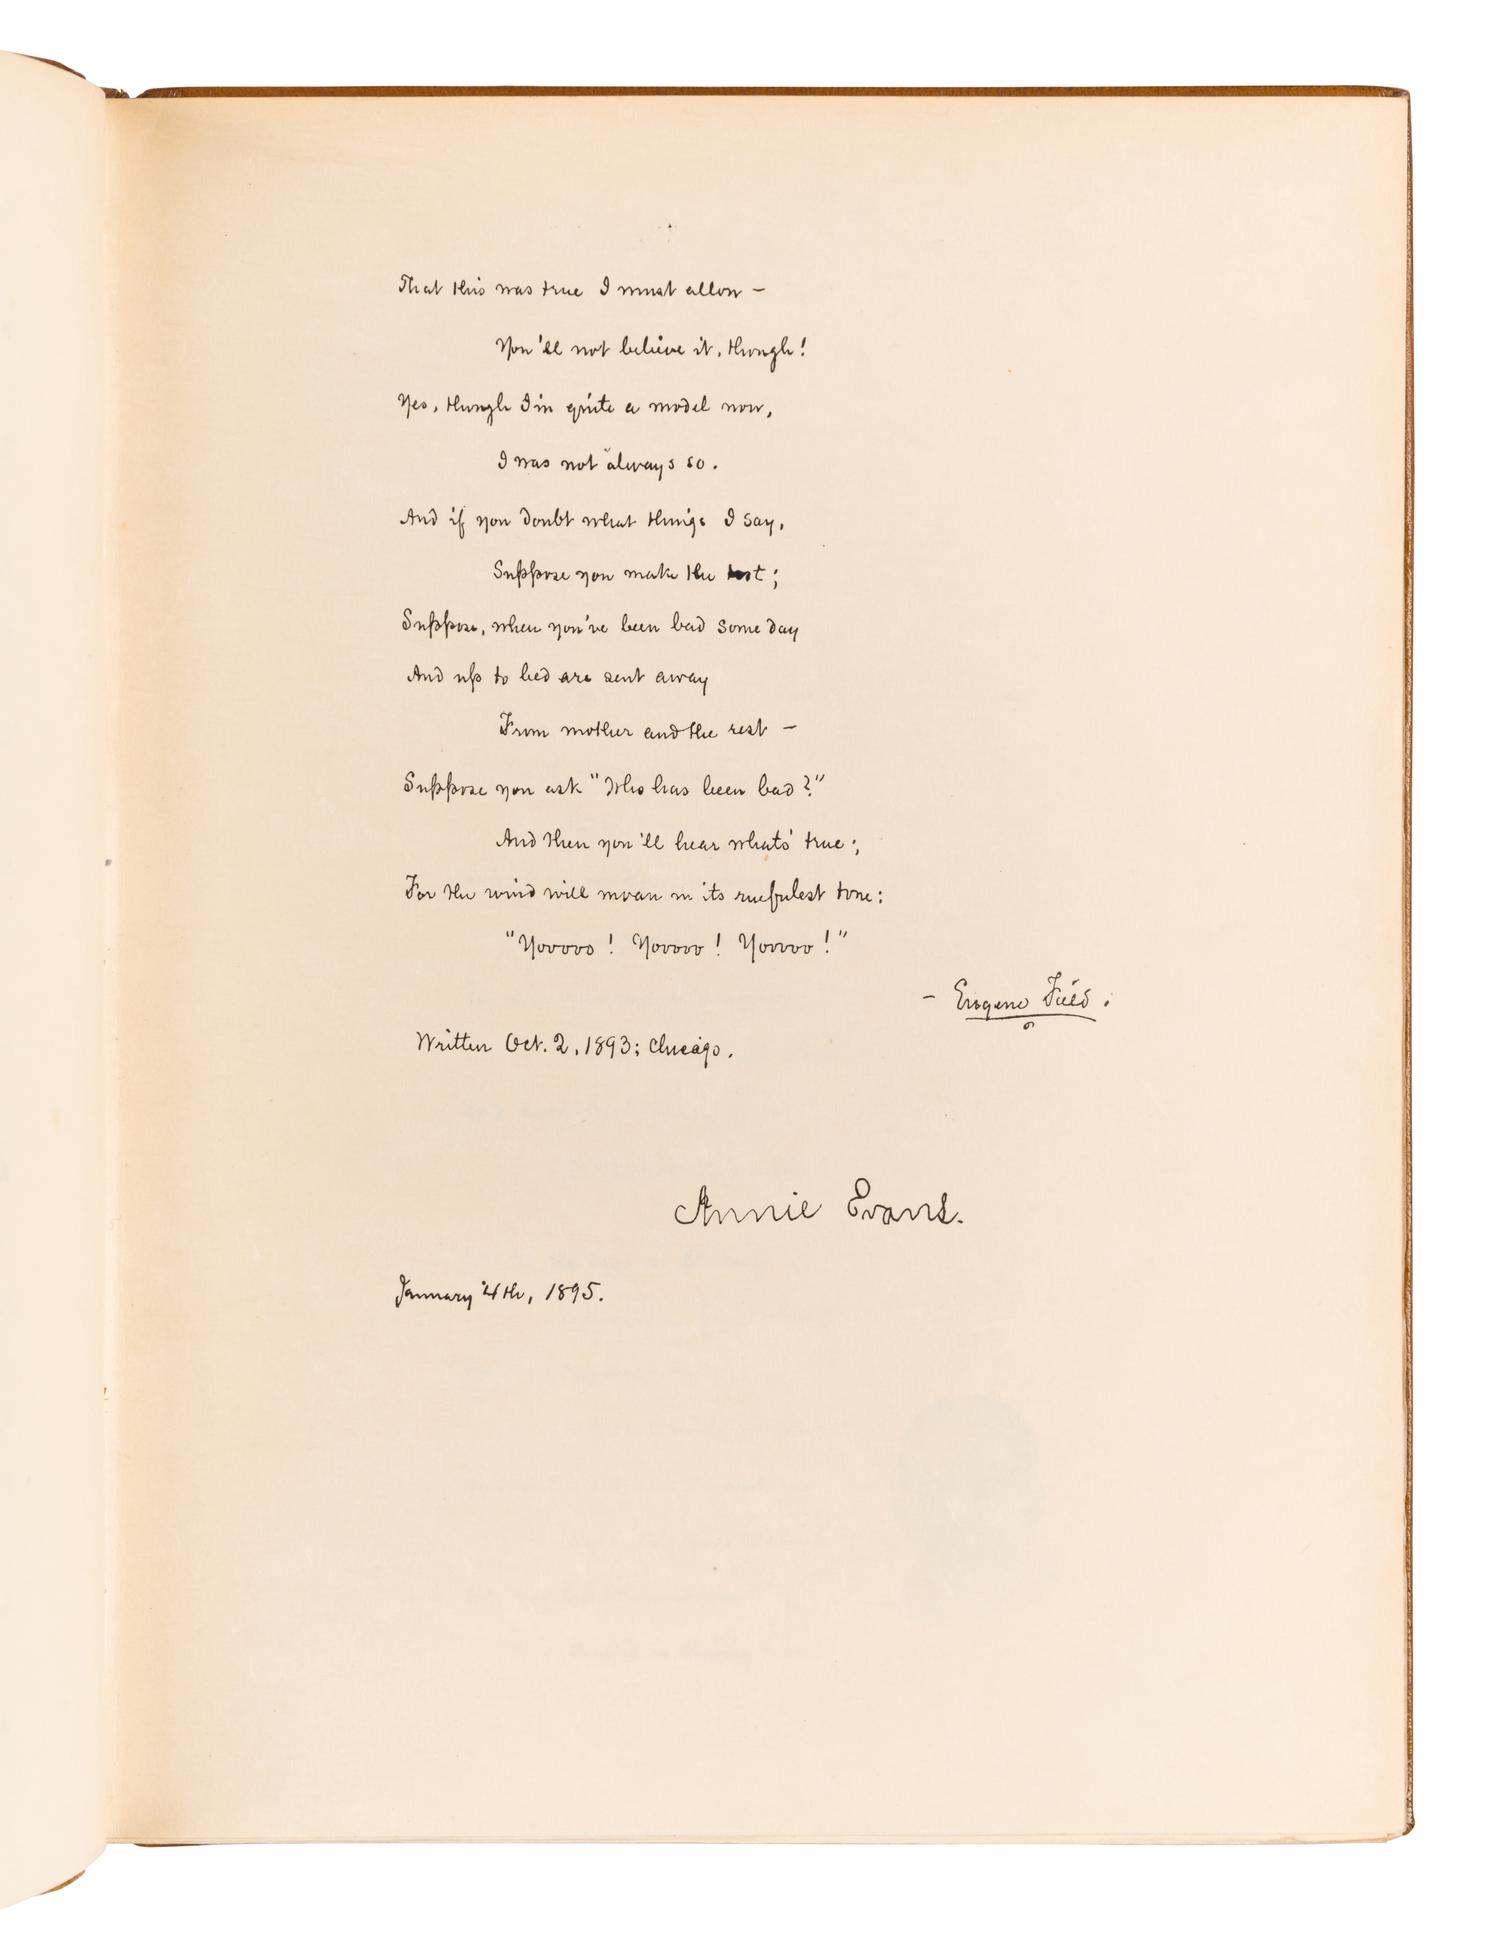 That this was true I must allow –
You'll not believe it, though!
Yes, though I'm quite a model now,
I was not always so.
And if you doubt what things I say,
Suppose you make the test;
Suppose, when you've been bad some day
And up to bed are sent away
From mother and the rest –
Suppose you ask "Who has been bad?"
And then you'll hear what's true;
For the wind will moan in its ruefulest tone:
"Yooooo! Yooooo! Yooooo!"
– Eugene Field.
Written Oct. 2, 1893; Chicago.
Annie Evans.
January 4th, 1895.